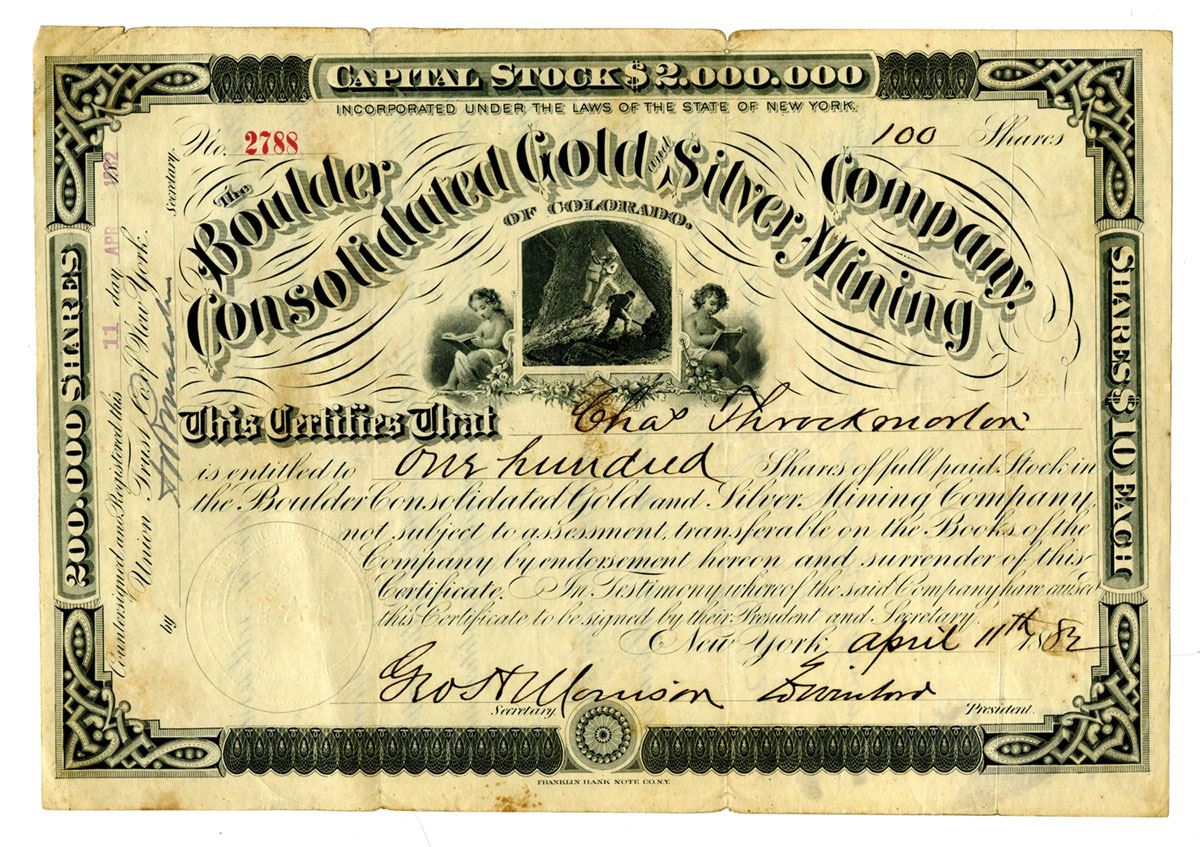 CAPITAL STOCK $2.000.000
INCORPORATED UNDER THE LAWS OF THE STATE OF NEW YORK.
No. 2788
100 Shares
The Boulder
Consolidated Gold and Silver Mining
Company.
OF COLORADO.
This Certifies That Chas Throckmorton
is entitled to One hundred Shares of full paid Stock in
the Boulder Consolidated Gold and Silver Mining Company,
not subject to assessment, transferable on the Books of the
Company by endorsement hereon and surrender of this
Certificate. In Testimony whereof the said Company have caused
this Certificate to be signed by their President and Secretary.
New York, april 11th 1882
Geo H Morrison
Secretary.
President.
FRANKLIN BANK NOTE CO. N.Y.
200.000 SHARES
Countersigned and Registered this 11 day APR 1882
Union Trust Co. of New York.
by
Secretary.
SHARES $10 EACH